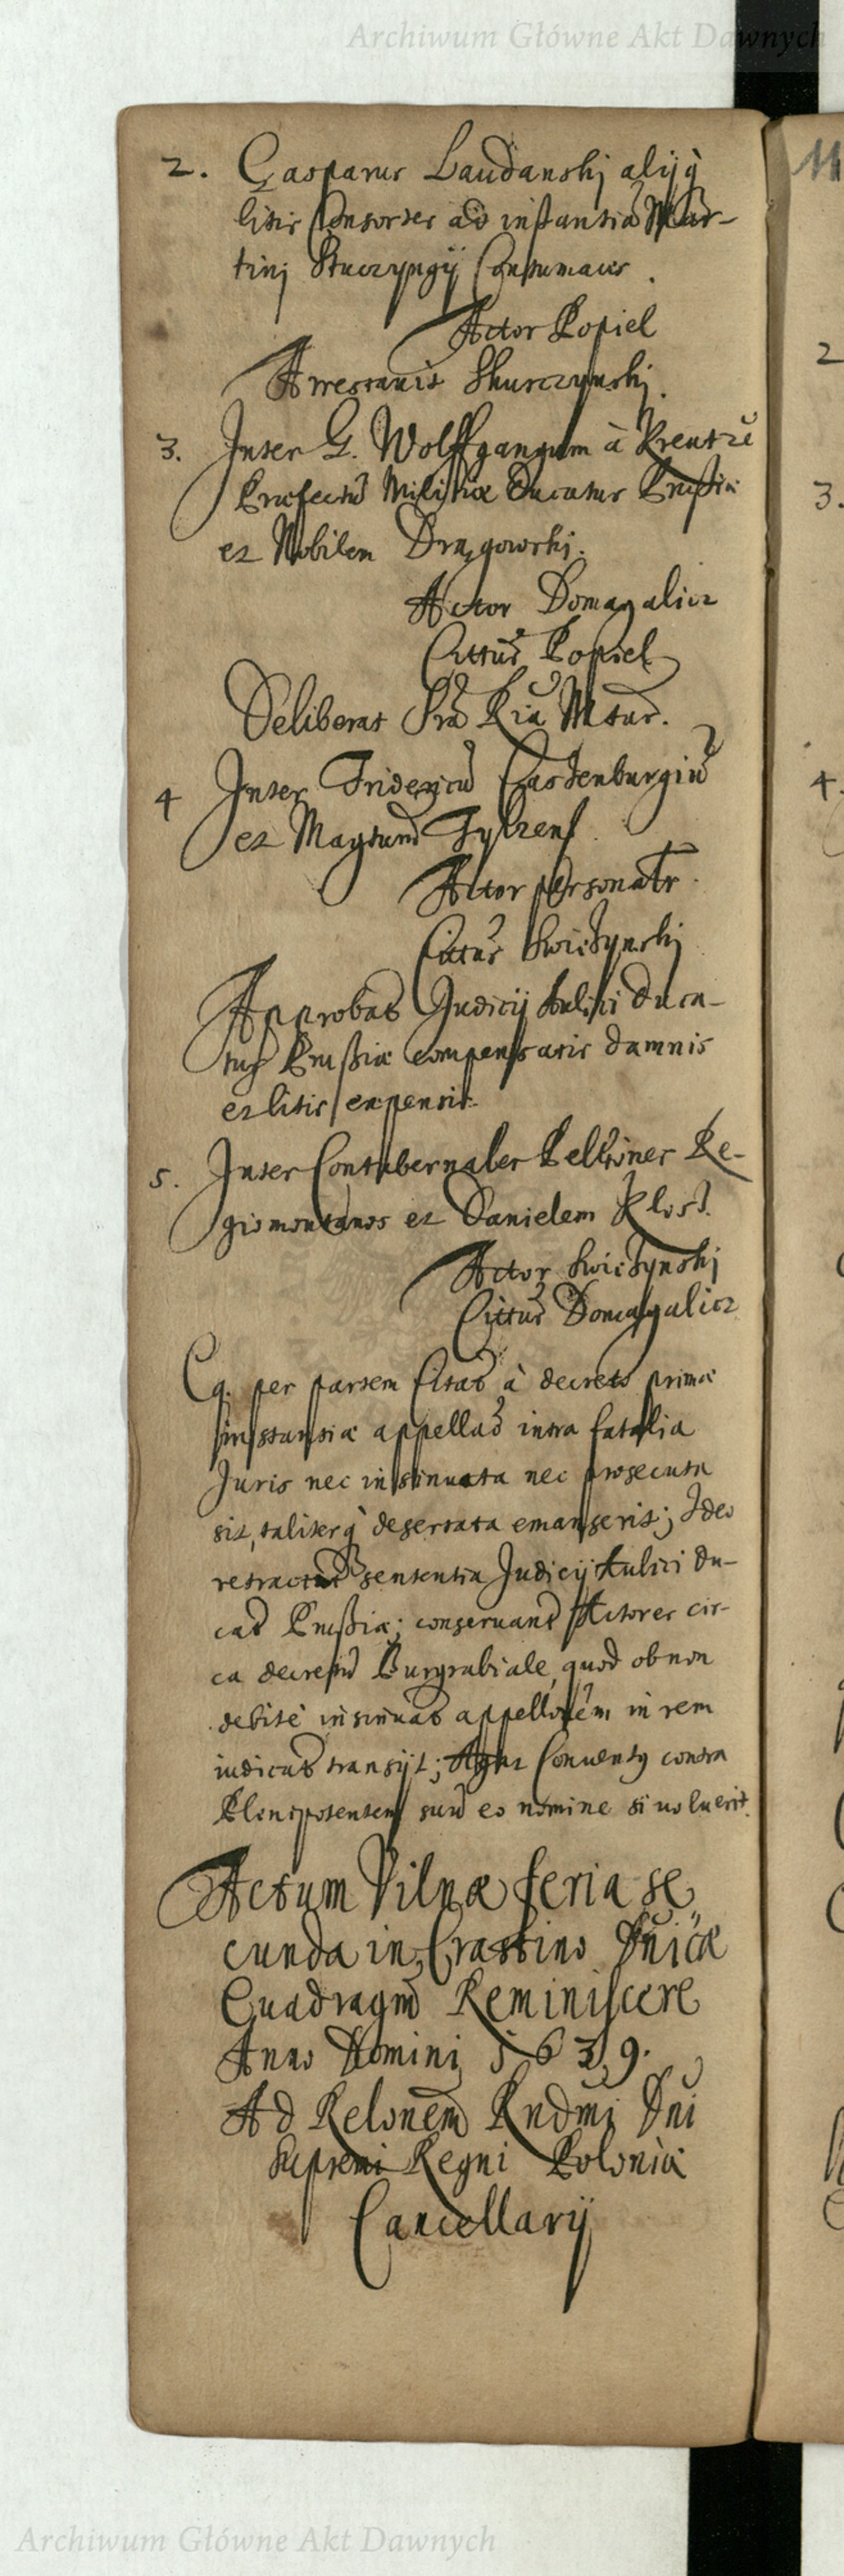 Archiwum Główne Akt Dawnych
2. Casparus Laudanskj alijq̀
litis Consortes ad instantiã Mar-
tinj Stuczyngij Contumaces.
Actor Popiel
Arrestavit Skurczynskj.
3. Inter G. Wolffgangum à Kreutzẽ
Præfectũ Militiæ Ducatus Prussiæ
et Nobilem Drągowski.
Actor Domagalicz
Cittũs Popiel
Deliberat Sra Ria Mtas.
4 Inter Fridericũ Castenburgiũ
et Magtum Tylzens.
Actor personatr.
Cittũs Swiețynskj
Approbat Judicij Aulici Duca-
tus Prussiæ compensatis damnis
et litis expensis.
5. Inter Contubernales Pellioner Re-
giomontanos et Danielem Klosd.
Actor Swiețynskj
Cittũs Domagalicz
Cq. per partem Citat à decreto primæ
instantiæ appellaõ intra fatalia
Juris nec insinuata nec prosecuta
sit, taliterq̀ desertata emanserit; Ideo
retractat sententia Judicij Aulici Du-
cat Prussiæ; conservant Actores cir-
ca decretũ Burgrabiale, quod ob non
debitè insinuat appellonem in rem
iudicat transijt; Agat Conventus contra
Plenipotentem suũ eo nomine si voluerit.
Actum Vilnæ feria se
cunda in Crastino Dnicæ
Quadragm Reminiscere
Anno Domini 1639.
Ad Relonem Rndmi Dni
Supremi Regni Poloniæ
Cancellarij
2
3.
4.
Archiwum Główne Akt Dawnych